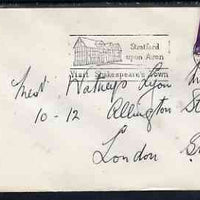 Stratford
upon Avon
Visit Shakespeare's Town
Messrs Hatheys Lyon
10-12 Allington St
London